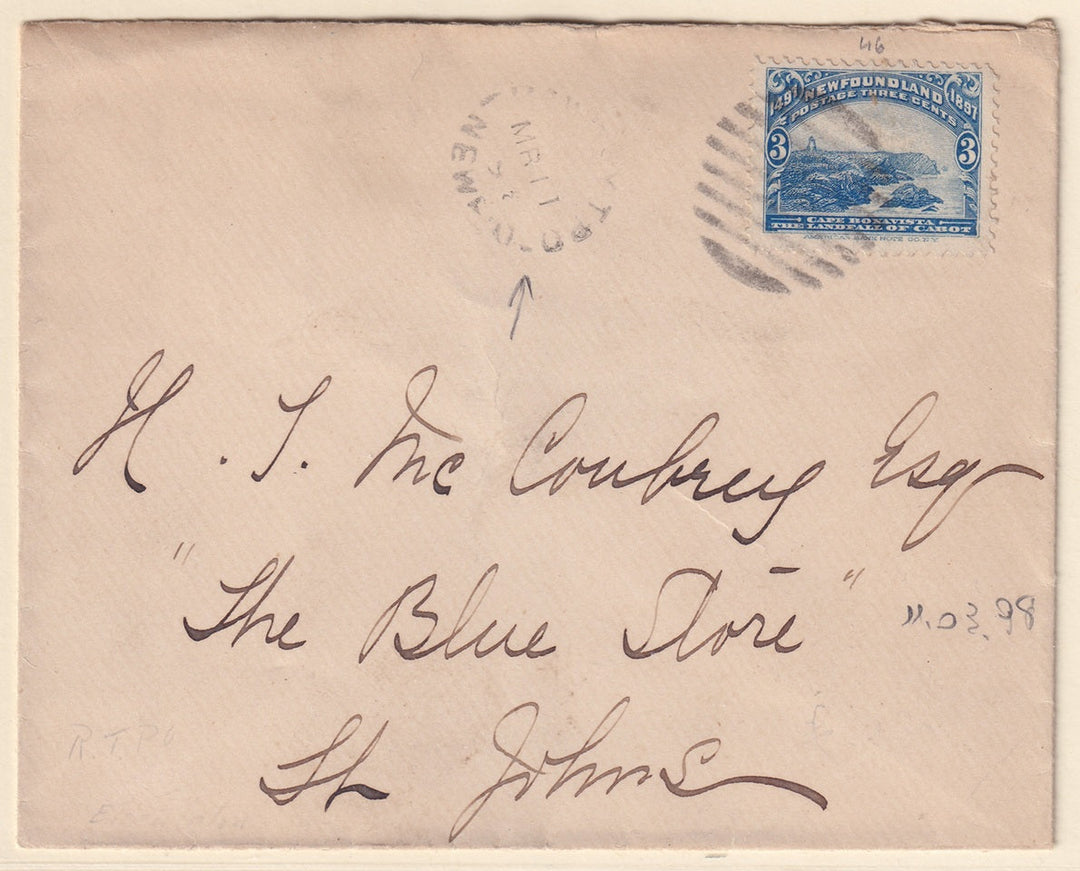 46
1497 NEWFOUNDLAND 1897
POSTAGE THREE CENTS
3 3
CAPE BONAVISTA
THE LANDFALL OF CABOT
AMERICAN BANK NOTE CO. N.Y.
T.P.O.
MR 11
NEWF'D
H. J. McCoubrey Esq
"The Blue Store"
11.03.98
St Johns
R.T.P.O